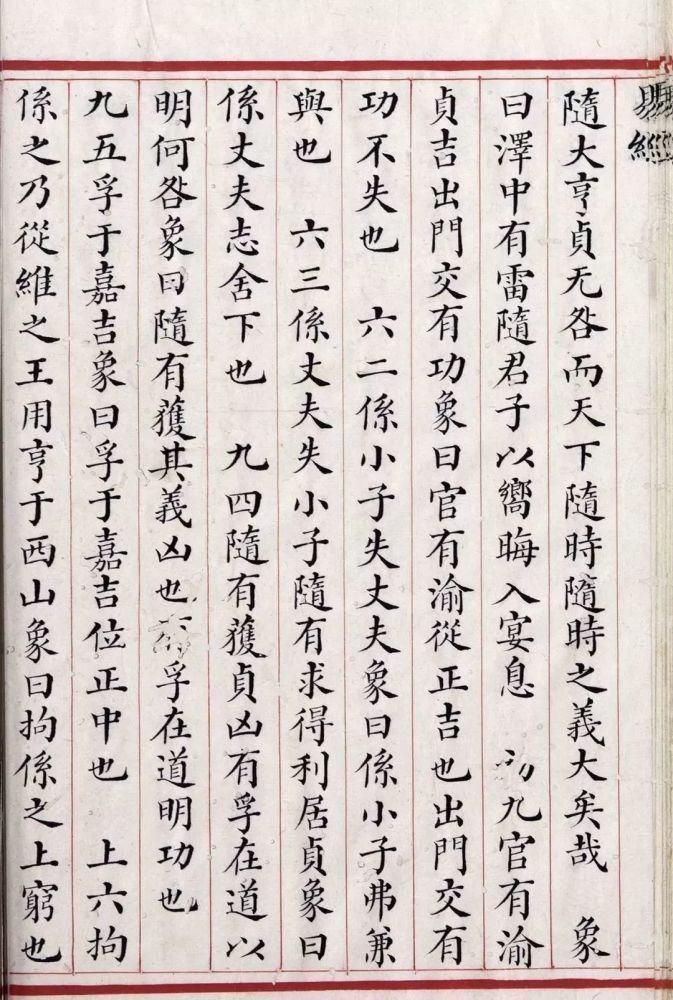 易經
隨大亨貞无咎而天下隨時隨時之義大矣哉 象
曰澤中有雷隨君子以嚮晦入宴息 初九官有渝
貞吉出門交有功象曰官有渝從正吉也出門交有
功不失也 六二係小子失丈夫象曰係小子弗兼
與也 六三係丈夫失小子隨有求得利居貞象曰
係丈夫志舍下也 九四隨有獲貞凶有孚在道以
明何咎象曰隨有獲其義凶也 孚在道明功也
九五孚于嘉吉象曰孚于嘉吉位正中也 上六拘
係之乃從維之王用亨于西山象曰拘係之上窮也